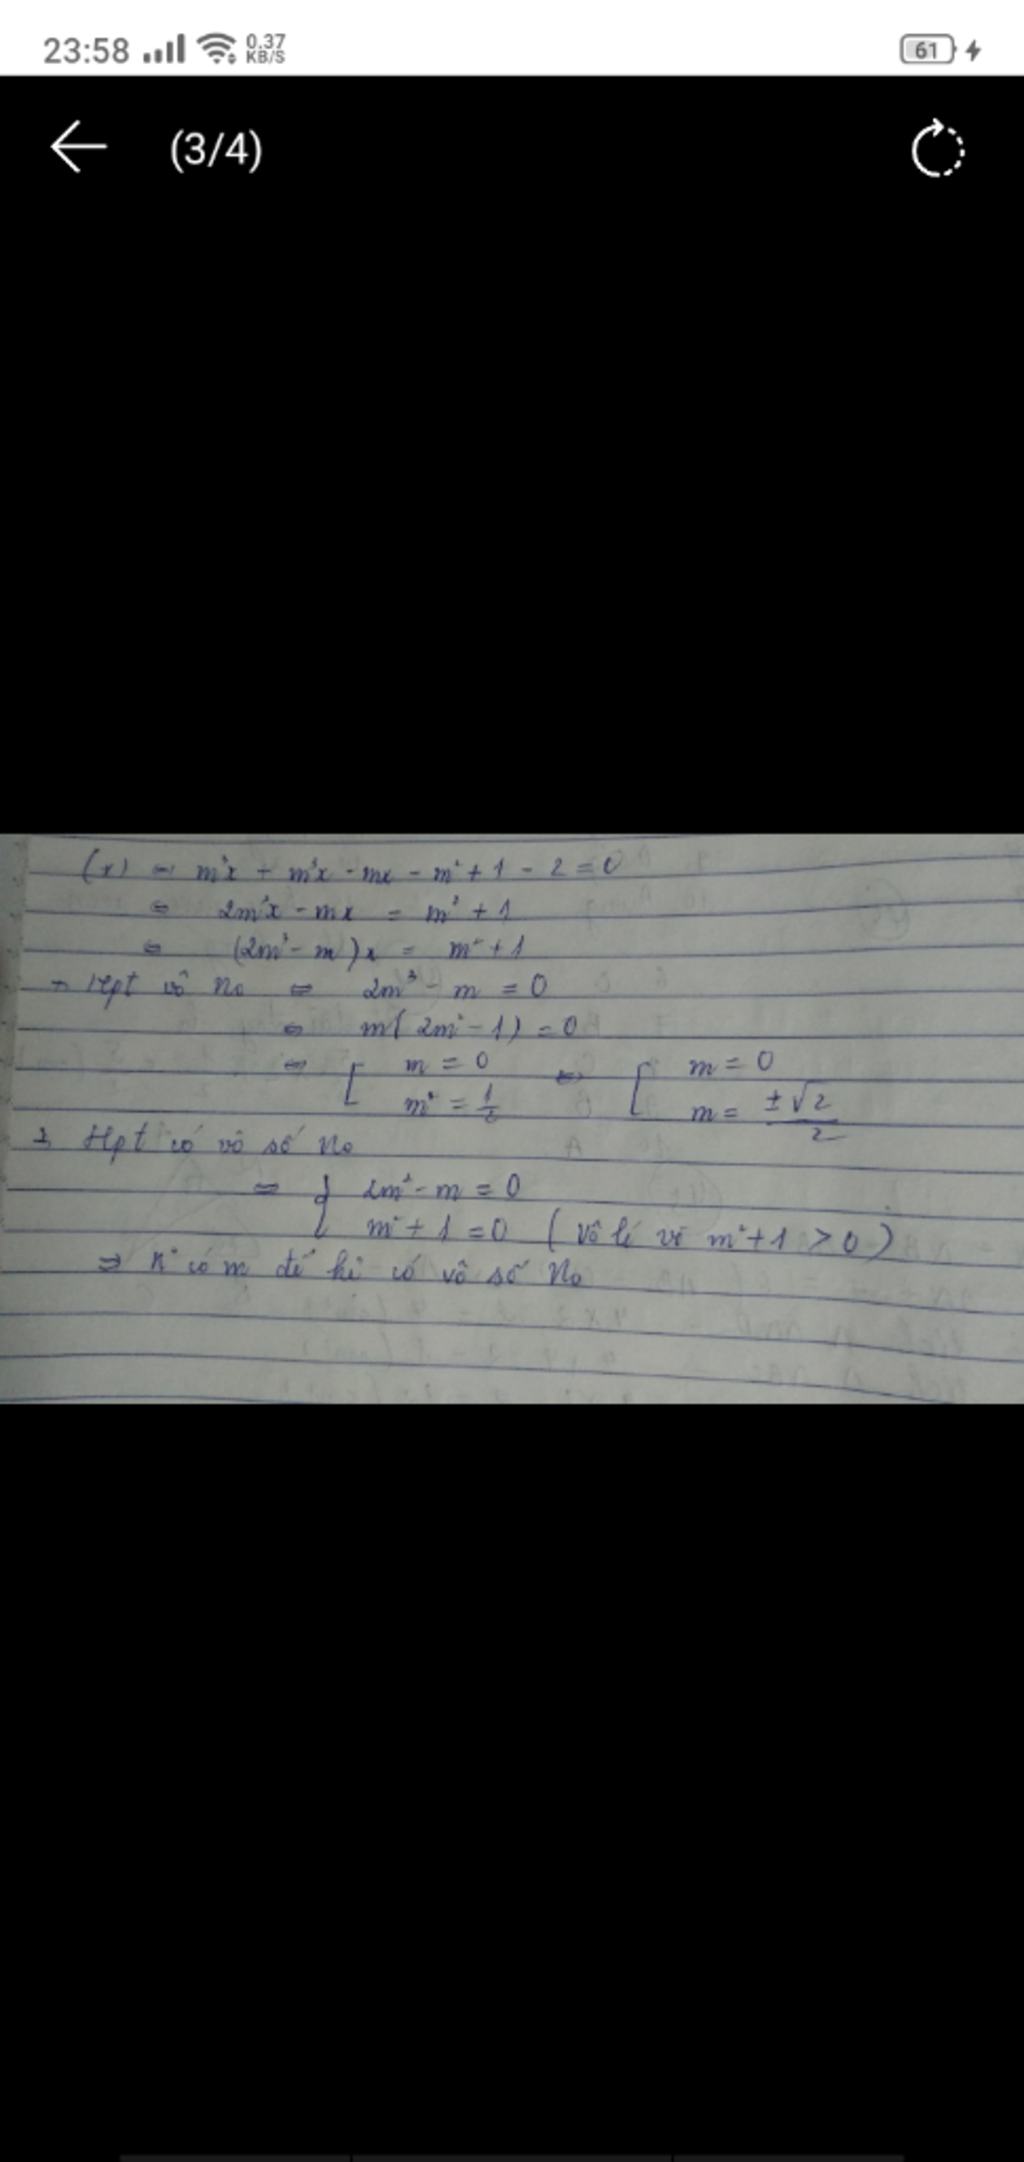 23:58 0.37 KB/S 61
(3/4)
(x) ⇔ m³x + m³x - mx - m² + 1 - 2 = 0
⇔ 2m³x - mx = m² + 1
⇔ (2m³ - m)x = m² + 1
Hpt vô no ⇔ 2m³ - m = 0
⇔ m(2m² - 1) = 0
⇔ [ m = 0 ⇔ [ m = 0
m² = 1/2 m = ±√2/2
2, Hpt có vô số no
⇔ { 2m³ - m = 0
m² + 1 = 0 ( Vô lí vì m² + 1 > 0 )
⇒ K° có m để hệ có vô số no